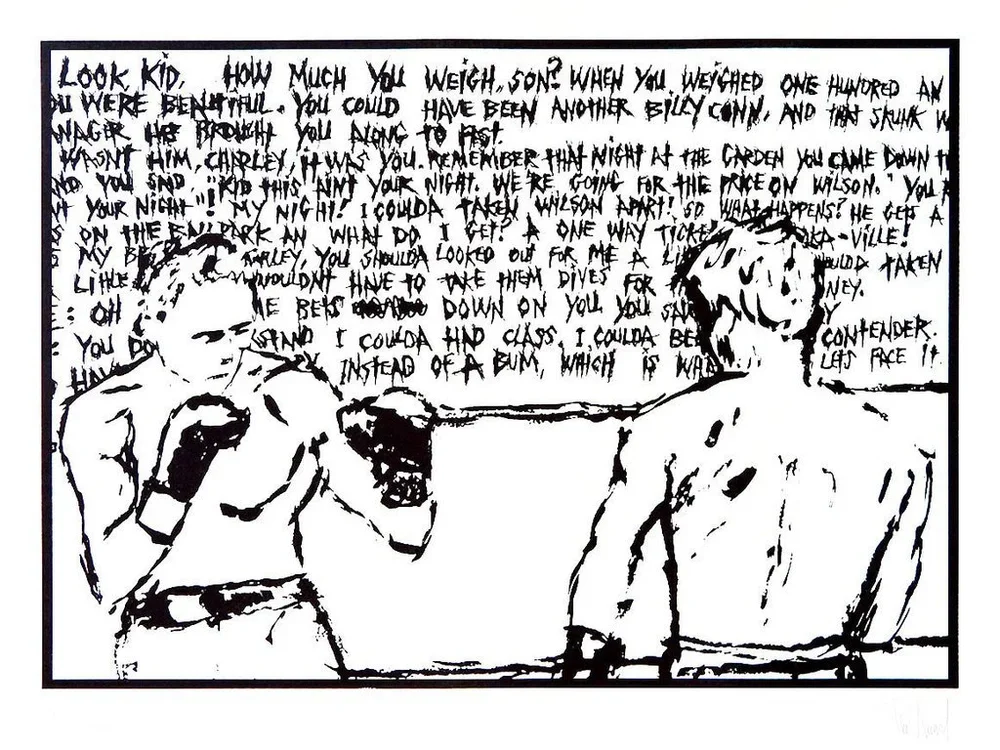 LOOK KID, HOW MUCH YOU WEIGH, SON? WHEN YOU WEIGHED ONE HUNDRED AN
OU WERE BEAUTIFUL. YOU COULD HAVE BEEN ANOTHER BILLY CONN, AND THAT SKUNK W
NAGER HE BROUGHT YOU ALONG TO FAST
WASNT HIM, CHARLEY, IT WAS YOU. REMEMBER THAT NIGHT AT THE GARDEN YOU CAME DOWN T
ND YOU SAID "KID THIS AINT YOUR NIGHT. WE'RE GOING FOR THE PRICE ON WILSON." YOU R
T YOUR NIGHT"! MY NIGHT! I COULDA TAKEN WILSON APART! SO WHAT HAPPENS? HE GETS A
S ON THE BALLPARK AN WHAT DO I GET? A ONE WAY TICKE OKA-VILLE!
MY B ARLEY, YOU SHOULDA LOOKED OUT FOR ME A LI OULDA TAKEN
LITTLE WOULDNT HAVE TO TAKE THEM DIVES FOR NEY.
: OH ME BETS DOWN ON YOU YOU SA Y
YOU DO STAND I COULDA HAD CLASS. I COULDA BEE CONTENDER.
HAV Y INSTEAD OF A BUM, WHICH IS WHA LETS FACE IT.